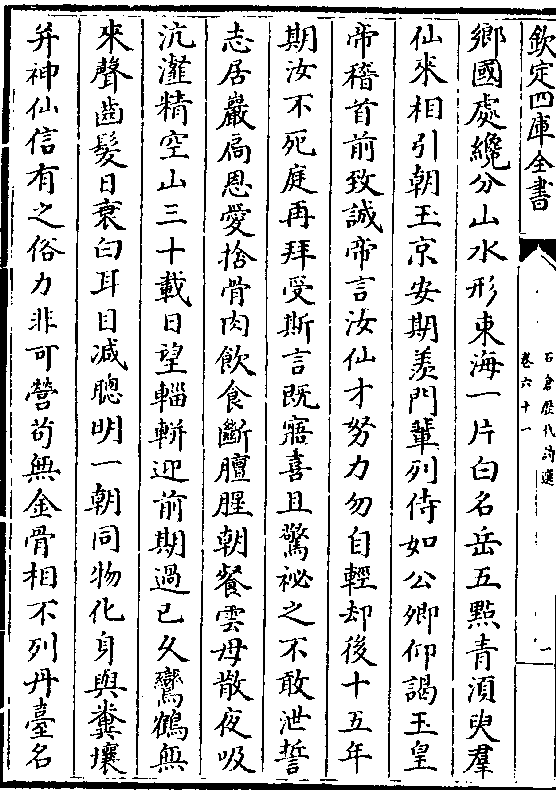 欽定四庫全書
石倉歷代詩選
卷六十一
一
鄉國處纔分山水形東海一片白名岳五點青湏臾羣
仙来相引朝玉京安期羨門輩列侍如公卿仰謁玉皇
帝稽首前致誠帝言汝仙才努力勿自輕却後十五年
期汝不死庭再拜受斯言既寤喜且驚祕之不敢泄誓
志居巖扃恩愛捨骨肉飲食斷膻腥朝餐雲母散夜吸
沆瀣精空山三十載日望輜軿迎前期過已久鸞鶴無
來聲齒髮日衰白耳目减聰明一朝同物化身與糞壤
并神仙信有之俗力非可營茍無金骨相不列丹臺名